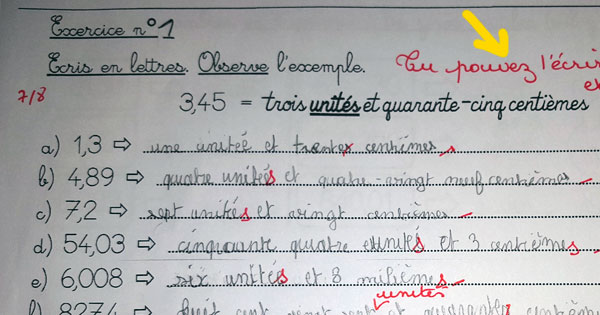 Exercice n°1
Ecris en lettres. Observe l'exemple. Tu pouvez l'écrir
7/8
3,45 = trois unités et quarante-cinq centièmes
a) 1,3 ⇨ une unitéé et trente centièmes
b) 4,89 ⇨ quatre unités et quatre-vingt neuf centièmes
c) 7,2 ⇨ sept unités et vingt centièmes
d) 54,03 ⇨ cinquante quatre unités et 3 centièmes
e) 6,008 ⇨ six unités et 8 millièmes
unités
8274 ⇨ cent vingt sept et quarante centièm